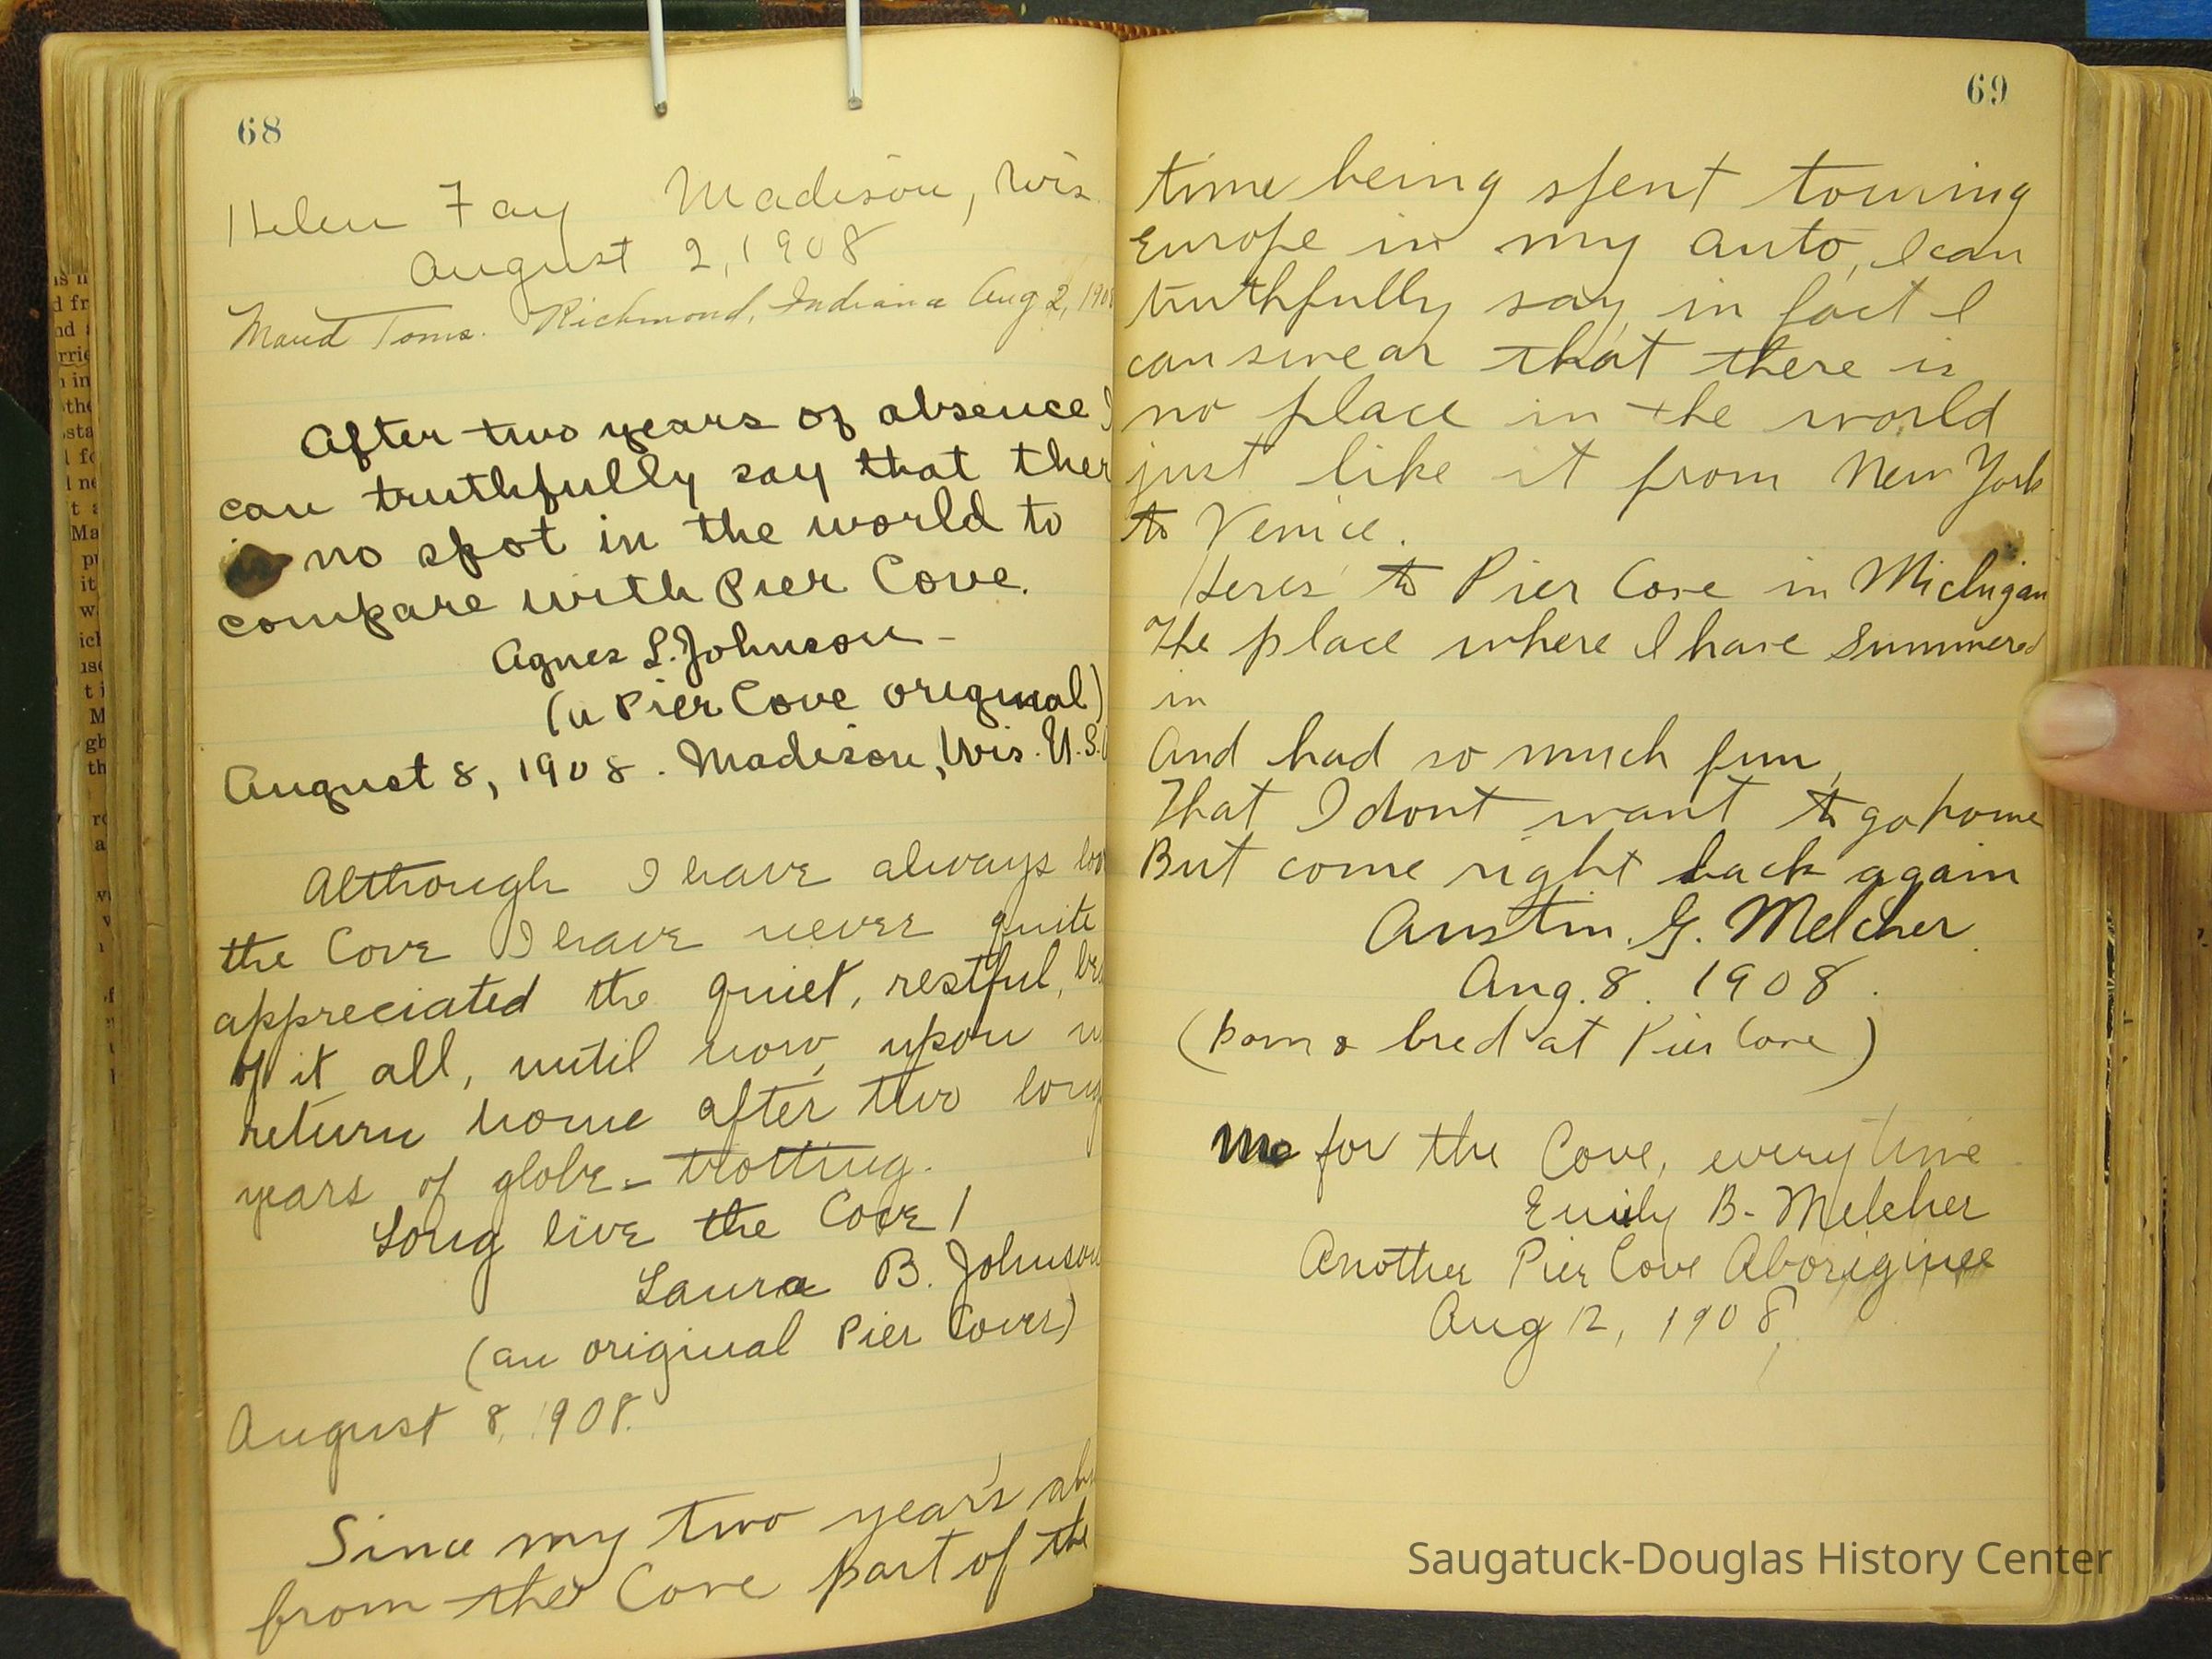 68
Helen Fay Madison, Wis.
August 2, 1908
Maud Toms. Richmond, Indiana Aug 2, 190
After two years of absence I
can truthfully say that ther
is no spot in the world to
compare with Pier Cove.
Agnes L. Johnson -
(a Pier Cove original)
August 8, 1908. Madison, Wis. U.S.
Although I have always lov
the Cove I have never quite
appreciated the quiet, restful,
of it all, until now, upon
return home after two long
years of globe-trotting.
Long live the Cove!
Laura B. Johnson
(an original Pier Cover)
August 8, 1908.
Since my two year's abs
from the Cove part of the
69
time being spent touring
Europe in my auto, I can
truthfully say, in fact I
can swear that there is
no place in the world
just like it from New York
to Venice.
Heres to Pier Cove in Michigan
The place where I have Summered
in
And had so much fun,
That I dont want to go home
But come right back again
Austin. G. Melcher.
Aug. 8. 1908.
(born & bred at Pier Cove)
Me for the Cove, everytime
Emily B. Melcher
Another Pier Cove Aboriginee
Aug 12, 1908.
Saugatuck-Douglas History Center